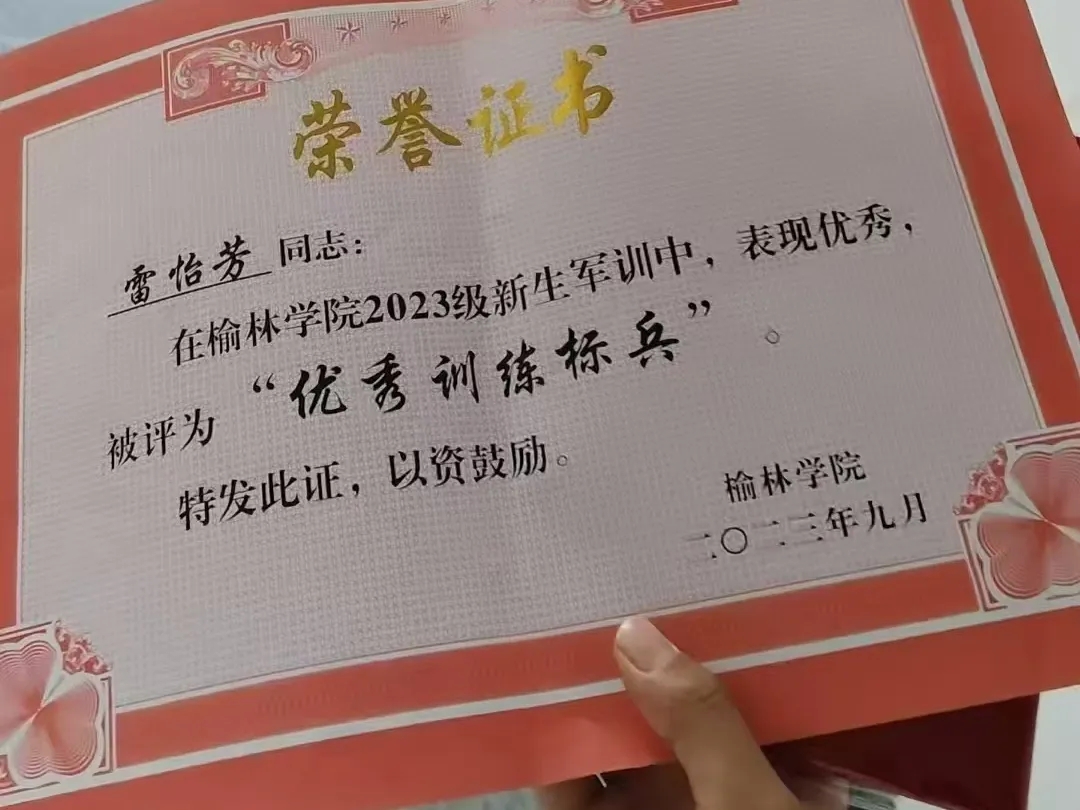 荣誉证书
雷怡芳 同志：
在榆林学院2023级新生军训中，表现优秀，
被评为 “优秀训练标兵”。
特发此证，以资鼓励。
榆林学院
二〇二三年九月